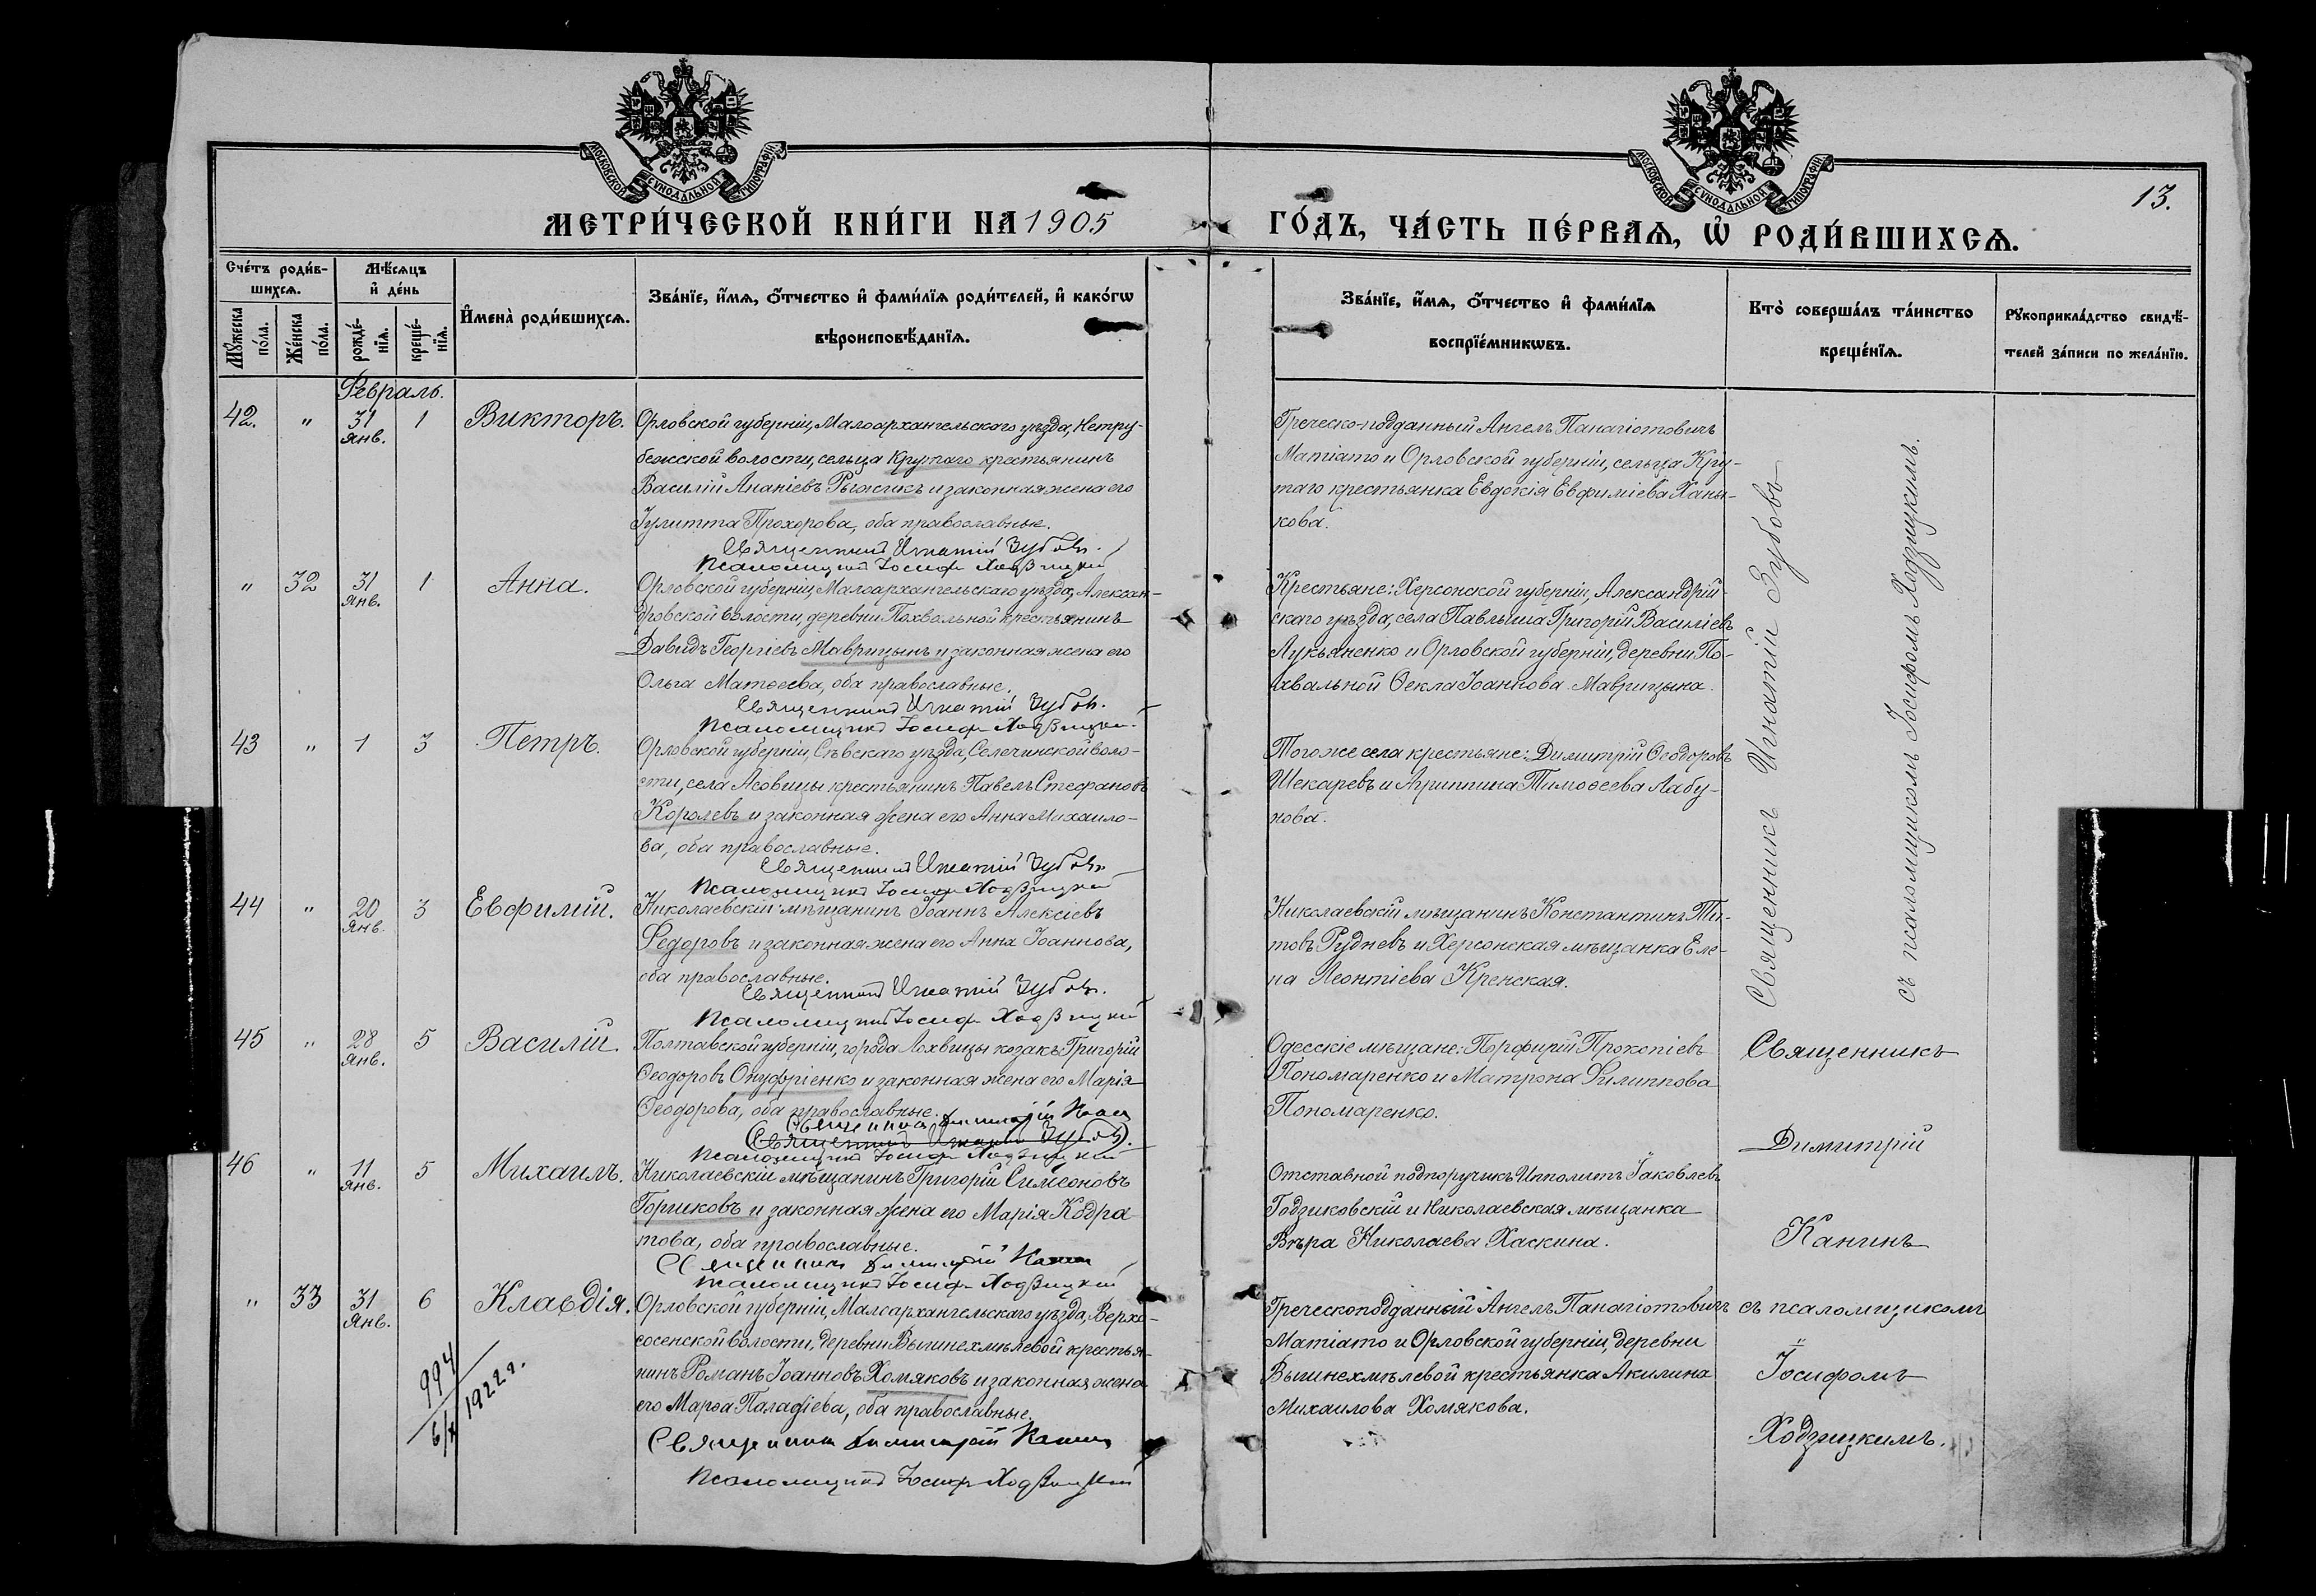 МОСКОВСКОЙ СѴНОДАЛЬНОЙ ТИПОГРАФІИ
МОСКОВСКОЙ СѴНОДАЛЬНОЙ ТИПОГРАФІИ
13.
МЕТРИ́ЧЕСКОЙ КНИ́ГИ НА 1905 ГО́ДЪ, ЧА́СТЬ ПЕ́РВАѦ, Ѡ҆ РОДИ́ВШИХСѦ.
Сче́тъ роди́в-
шихсѧ.
Мꙋ́жеска по́ла.
Же́нска по́ла.
Мѣ́сѧцъ
и҆ де́нь
рожде́-
нїѧ.
креще́-
нїѧ.
И҆мена̀ роди́вшихсѧ.
Зва́нїе, и҆́мѧ, ѻ҆́тчество и҆ фами́лїѧ роди́телей, и҆ како́гѡ
вѣроисповѣ́данїѧ.
Зва́нїе, и҆́мѧ, ѻ҆́тчество и҆ фами́лїѧ
воспрїе́мникѡвъ.
Кто̀ соверша́лъ та́инство
креще́нїѧ.
Рꙋкоприкла́дство свидѣ́-
телей за́писи по жела́нїю.
Февраль.
42. " 31 Янв. 1 Викторъ.
Орловской губерніи, Малоархангельского уѣзда, Нетру-
бежской волости, сельца Крутаго крестьянинъ
Василій Ананіевъ Рыжикъ и законная жена его
Іулитта Прохорова, оба православные.
Священникъ Игнатій Зубовъ.
Псаломщикъ Іосифъ Ходзицкій
Греческо-подданный Ангелъ Панагіотовичъ
Матіато и Орловской губерніи, сельца Кру-
таго крестьянка Евдокія Евфиміева Ханы-
кова.
" 32 31 Янв. 1 Анна.
Орловской губерніи, Малоархангельскаго уѣзда, Алексан-
дровской волости, деревни Похвальной крестьянинъ
Давидъ Георгіевъ Маврицынъ и законная жена его
Ольга Матѳеева, оба православные.
Священникъ Игнатій Зубовъ.
Псаломщикъ Іосифъ Ходзицкій
Крестьяне: Херсонской губерніи, Александрій-
скаго уѣзда, села Павлыша Григорій Василіевъ
Лукьяненко и Орловской губерніи, деревни По-
хвальной Ѳекла Іоаннова Маврицына.
43 " 1 3 Петръ.
Орловской губерніи, Сѣвскаго уѣзда, Селечинской воло-
сти, села Асовицы крестьянинъ Павелъ Стефановъ
Королевъ и законная жена его Анна Михаило-
ва, оба православные.
Священникъ Игнатій Зубовъ
Псаломщикъ Іосифъ Ходзицкій
Того же села крестьяне: Димитрій Ѳеодоровъ
Шекаревъ и Агриппина Тимоѳеева Лабу-
нова.
44 " 20 Янв. 3 Евфимій.
Николаевскій мѣщанинъ Іоаннъ Алексіевъ
Федоровъ и законная жена его Анна Іоаннова,
оба православные.
Священникъ Игнатій Зубовъ.
Псаломщикъ Іосифъ Ходзицкій
Николаевскій мѣщанинъ Константинъ Ти-
товъ Рудневъ и Херсонская мѣщанка Еле-
на Леонтіева Кренская.
Священникъ Игнатій Зубовъ
съ псаломщикомъ Іосифомъ Ходзицкимъ.
45 " 28 Янв. 5 Василій.
Полтавской губерніи, города Лохвицы козакъ Григорій
Ѳеодоровъ Онуфріенко и законная жена его Марія
Ѳеодорова, оба православные.
Священникъ Димитрій Канинъ
(Священникъ Игнатій Зубовъ).
Псаломщикъ Іосифъ Ходзицкій
Одесскіе мѣщане: Порфирій Прокопіевъ
Пономаренко и Матрона Филиппова
Пономаренко.
46 " 11 Янв. 5 Михаилъ.
Николаевскій мѣщанинъ Григорій Симеоновъ
Горшковъ и законная жена его Марія Кодра-
това, оба православные.
Священникъ Димитрій Канинъ
Псаломщикъ Іосифъ Ходзицкій
Отставной подпоручикъ Ипполитъ Іаковлевъ
Годзиковскій и Николаевская мѣщанка
Вѣра Николаева Хаскина.
" 33 31 Янв. 6 Клавдія.
Орловской губерніи, Малоархангельскаго уѣзда, Верхо-
сосенской волости, деревни Вышнехмѣлевой крестья-
нинъ Романъ Іоанновъ Хомяковъ и законная жена
его Марѳа Паладіева, оба православные.
Священникъ Димитрій Канинъ
Псаломщикъ Іосифъ Ходзицкій
Греческоподданный Ангелъ Панагіотовичъ
Матіато и Орловской губерніи, деревни
Вышнехмѣлевой крестьянка Акилина
Михаилова Хомякова.
Священникъ
Димитрій
Канинъ
съ псаломщикомъ
Іосифомъ
Ходзицкимъ.
994
6/X 1922 г.